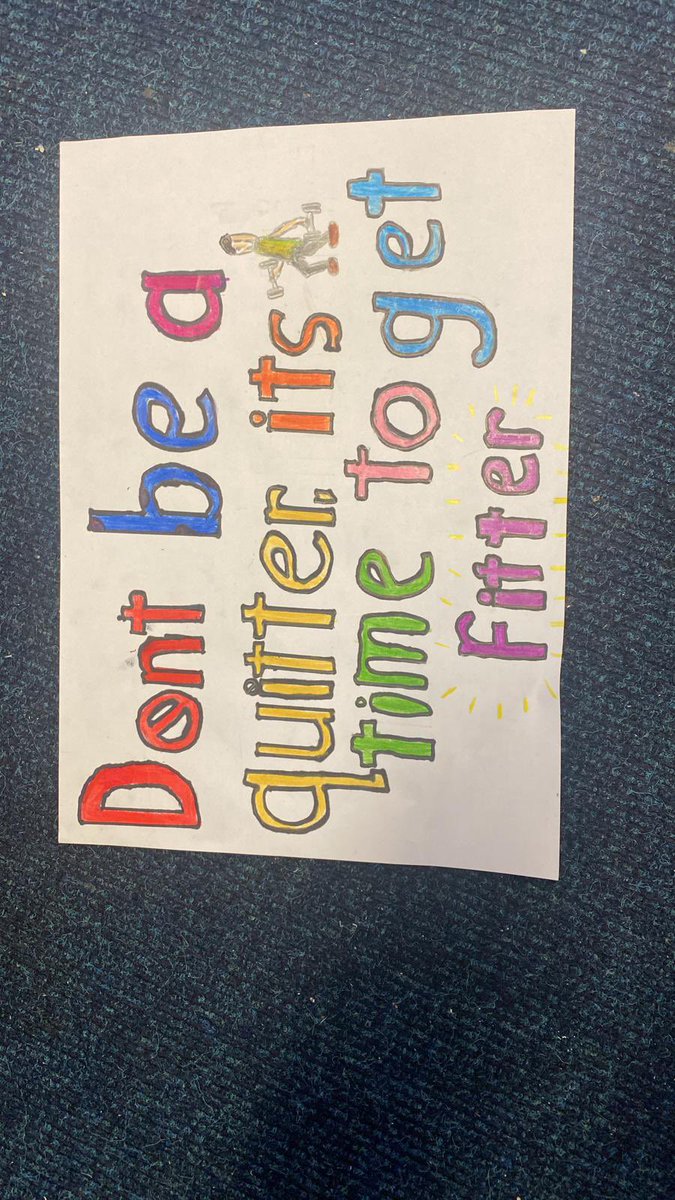 Dont be a
quitter, its
time to get
fitter